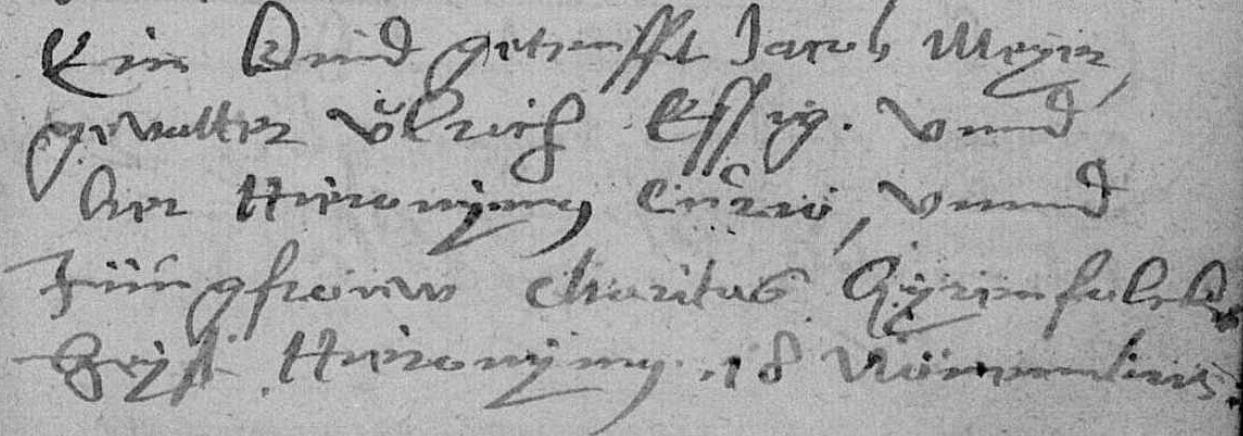 Ein Kind getaufft Jacob Meyer,
gevatter Ulrich Essig. vnnd
her Hieronymus, vnnd
Jungfrouw Charitas
heist Hieronymus. 18 Nouembris.